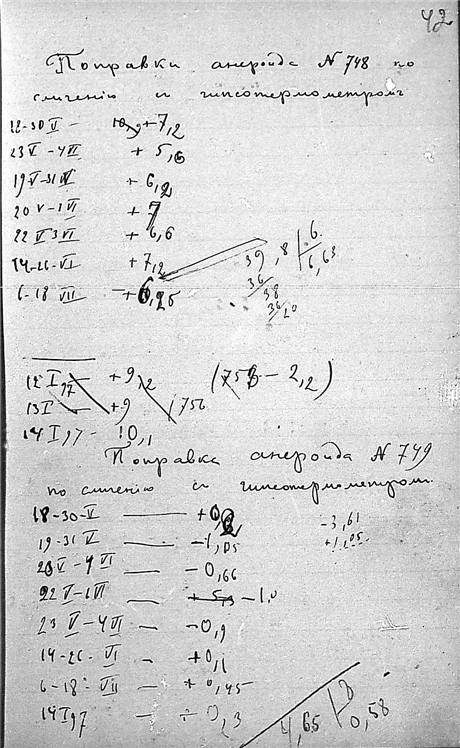 42
Поправки анероида N 748 по
сличенію съ гипсотермометромъ
12-30 V - +7,2
23 V - 4 VI + 5,6
19 V - 31 V + 6,2
20 V - 1 VI + 7
22 V 3 VI + 6,6
14-26-VI +7,2
6-18 VII - +6,25
39,8 | 6
36 6,63
38
36
20
12 I 97 - +9,2 (758 - 2,2)
13 I - +9 756
14 I 97 - 10,1
Поправка анероида N 749
по сличенію съ гипсотермометромъ.
18-30-V — +0,2
19-31 V — -1,05
20 V - 1 VI — -0,66
22 V - 1 VI — + 5,3 -1,0
23 V - 4 VI — -0,9
14-26- VI - +0,1
6-18- VII - +0,45
14 I 97 - 0,3
-3,61
+1,05
4,65 | 8
0,58